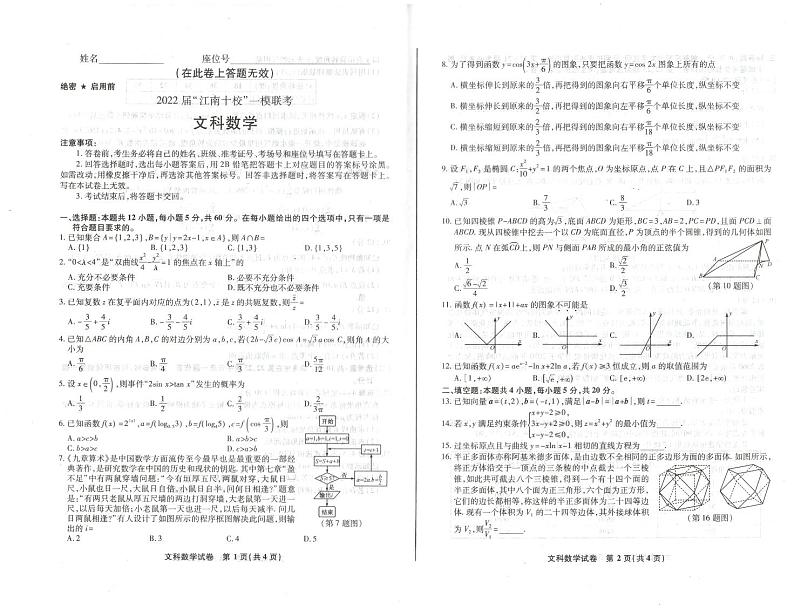 姓名____________ 座位号____________
(在此卷上答题无效)
绝密 ★ 启用前
2022 届“江南十校”一模联考
文科数学
注意事项:
1. 答卷前,考生务必将自己的姓名、班级、准考证号、考场号和座位号填写在答题卡上。
2. 回答选择题时,选出每小题答案后,用 2B 铅笔把答题卡上对应题目的答案标号涂黑。
如需改动,用橡皮擦干净后,再选涂其他答案标号。回答非选择题时,将答案写在答题卡上。
写在本试卷上无效。
3. 考试结束后,将答题卡交回。
一、选择题:本题共 12 小题,每小题 5 分,共 60 分。在每小题给出的四个选项中,只有一项是
符合题目要求的。
1. 已知集合 A={1,2,3},B={y|y=2x-1,x∈A},则 A∩B=
A. {1} B. {1,2} C. {1,3} D. {1,3,5}
2. “0<λ<4”是“双曲线x²/4-y²/λ=1 的焦点在 x 轴上”的
A. 充分不必要条件 B. 必要不充分条件
C. 充要条件 D. 既不充分也不必要条件
3. 已知复数 z 在复平面内对应的点为(2,1),z̄ 是 z 的共轭复数,则z/z̄=
A. -3/5+4/5i B. -3/5-4/5i C. 3/5+4/5i D. 3/5-4/5i
4. 已知△ABC 的内角 A,B,C 的对边分别为 a,b,c,若(2b-√3c)cos A=√3a cos C,则角 A 的大
小为
A. π/6 B. π/4 C. π/3 D. 5π/12
5. 设 x∈(0,π/2),则事件“2sin x>tan x”发生的概率为
A. 1/3 B. 1/2 C. 2/3 D. 2/3π
6. 已知函数 f(x)=2^|x|,
A. a>c>b B. a>b>c
C. b>a>c D. c>a>b
7. 《九章算术》是中国数学方面流传至今最早也是最重要的一部经
典著作,是研究数学在中国的历史和现状的钥匙. 其中第七章“盈
不足”中有两鼠穿墙问题:“今有垣厚五尺,两鼠对穿,大鼠日一
尺,小鼠也日一尺,大鼠日自倍,小鼠日自半,问何日相逢?”题意
是:“有两只老鼠从厚五尺墙的两边打洞穿墙,大老鼠第一天进一
尺,以后每天加倍;小老鼠第一天也进一尺,以后每天减半. 问几
日两鼠相逢?”有人设计了如图所示的程序框图解决此问题,则输
出的 i=
A. 2 B. 3 C. 4 D. 5
开始
a=1,b=1,i=1,S=0
S=S+a+b
i=i+1
S≥5?
否
是
输出i
结束
(第 7 题图)
文科数学试卷 第 1 页(共 4 页)
8. 为了得到函数 y=cos(3x+π/6)的图象,只要把函数 y=cos 2x 图象上所有的点
A. 横坐标伸长到原来的3/2倍,再把得到的图象向右平移π/6个单位长度,纵坐标不变
B. 横坐标伸长到原来的3/2倍,再把得到的图象向左平移π/6个单位长度,纵坐标不变
C. 横坐标缩短到原来的2/3倍,再把得到的图象向右平移π/18个单位长度,纵坐标不变
D. 横坐标缩短到原来的2/3倍,再把得到的图象向左平移π/18个单位长度,纵坐标不变
9. 设 F₁,F₂ 是椭圆 C:x²/10+y²=1 的两个焦点,O 为坐标原点,点 P 在 C 上,且△PF₁F₂ 的面积为
√7,则|OP|=
A. √3 B. 7/3 C. 8/3 D. 3
10. 已知四棱锥 P-ABCD 的高为√3,底面 ABCD 为矩形,BC=3,AB=2,PC=PD,且面 PCD⊥面
ABCD. 现从四棱锥中挖去一个以 CD 为底面直径,P 为顶点的半个圆锥,得到的几何体如图
所示. 点 N 在弧CD上,则 PN 与侧面 PAB 所成的最小角的正弦值为
A. 1/2 B. √2/2
C. (√6-√2)/4 D. √3/2
P
A
D
N
B
C
(第 10 题图)
11. 函数 f(x)=|x+1|+ax 的图象不可能是
A. B. C. D.
12. 已知函数 f(x)=ae^x-ln x+2ln a,若 f(x)≥3 恒成立,则 a 的取值范围为
A. [1,+∞) B. [√e,+∞) C. [e,+∞) D. [2e,+∞)
二、填空题:本题共 4 小题,每小题 5 分,共 20 分。
13. 已知向量 a=(t,2),b=(-t,1),满足|a-b|=|a+b|,则 t=______.
14. 若 x,y 满足约束条件{x+y-2≥0, 3x-y+2≥0, x-y-2≤0, 则 z=x²+y² 的最小值为______.
15. 过坐标原点且与曲线 y=-√x ln x-1 相切的直线方程为______.
16. 半正多面体亦称阿基米德多面体,是由边数不全相同的正多边形为面的多面体. 如图所示,
将正方体沿交于一顶点的三条棱的中点截去一个三棱
锥,如此共可截去八个三棱锥,得到一个有十四个面的
半正多面体,其中八个面为正三角形,六个面为正方形,
它们的边长都相等,称这样的半正多面体为二十四等边
体. 现有一个体积为 V₁ 的二十四等边体,其外接球体积
为 V₂,则V₂/V₁=______.
(第 16 题图)
文科数学试卷 第 2 页(共 4 页)